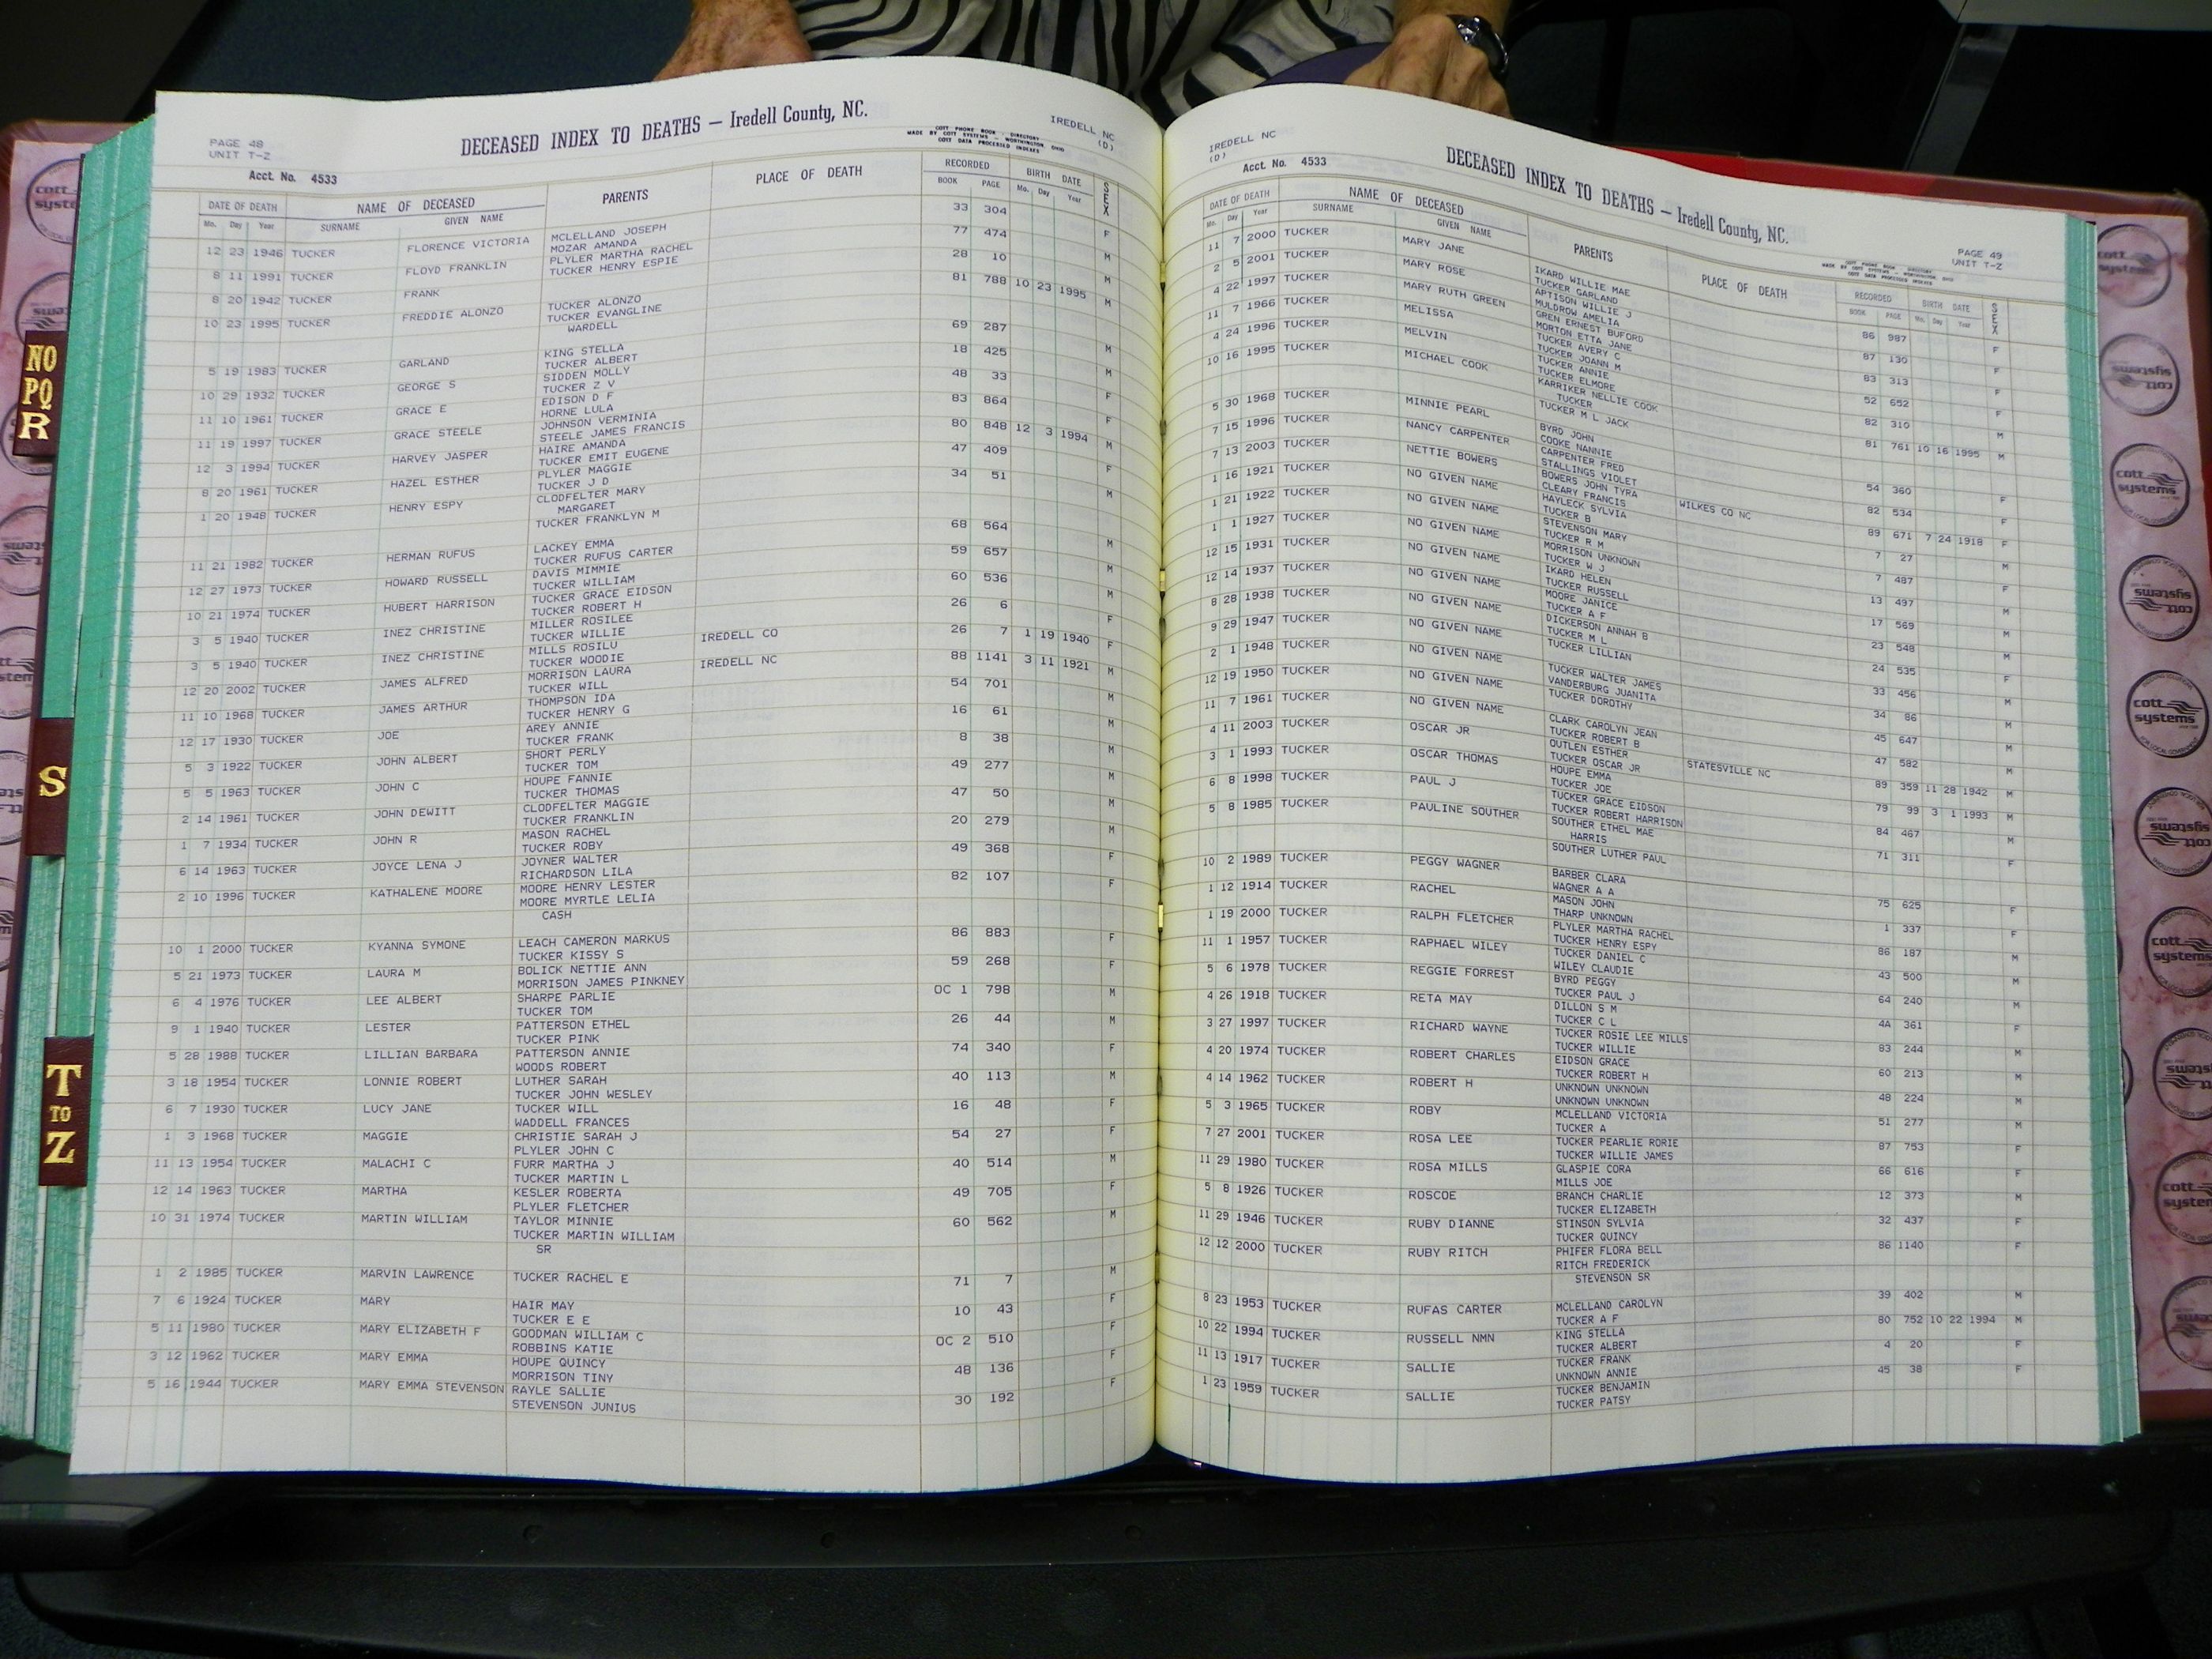 PAGE 48
UNIT T-Z
DECEASED INDEX TO DEATHS — Iredell County, NC.
COTT PHONE BOOK - DIRECTORY
MADE BY COTT SYSTEMS - WORTHINGTON, OHIO
COTT DATA PROCESSED INDEXES
IREDELL NC
(D)
Acct. No. 4533
DATE OF DEATH NAME OF DECEASED PARENTS PLACE OF DEATH RECORDED BIRTH DATE SEX
Mo. Day Year SURNAME GIVEN NAME BOOK PAGE Mo. Day Year
12 23 1946 TUCKER FLORENCE VICTORIA MCLELLAND JOSEPH 33 304 F
MOZAR AMANDA
8 11 1991 TUCKER FLOYD FRANKLIN PLYLER MARTHA RACHEL 77 474 M
TUCKER HENRY ESPIE
8 20 1942 TUCKER FRANK 28 10 M
10 23 1995 TUCKER FREDDIE ALONZO TUCKER ALONZO 81 788 10 23 1995 M
TUCKER EVANGLINE
WARDELL
5 19 1983 TUCKER GARLAND KING STELLA 69 287 M
TUCKER ALBERT
10 29 1932 TUCKER GEORGE S SIDDEN MOLLY 18 425 M
TUCKER Z V
11 10 1961 TUCKER GRACE E EDISON D F 48 33 F
HORNE LULA
11 19 1997 TUCKER GRACE STEELE JOHNSON VERMINIA 83 864 F
STEELE JAMES FRANCIS
12 3 1994 TUCKER HARVEY JASPER HAIRE AMANDA 80 848 12 3 1994 M
TUCKER EMIT EUGENE
8 20 1961 TUCKER HAZEL ESTHER PLYLER MAGGIE 47 409 F
TUCKER J D
1 20 1948 TUCKER HENRY ESPY CLODFELTER MARY 34 51 M
MARGARET
TUCKER FRANKLYN M
11 21 1982 TUCKER HERMAN RUFUS LACKEY EMMA 68 564 M
TUCKER RUFUS CARTER
12 27 1973 TUCKER HOWARD RUSSELL DAVIS MIMMIE 59 657 M
TUCKER WILLIAM
10 21 1974 TUCKER HUBERT HARRISON TUCKER GRACE EIDSON 60 536 M
TUCKER ROBERT H
3 5 1940 TUCKER INEZ CHRISTINE MILLER ROSILEE IREDELL CO 26 6 F
TUCKER WILLIE
3 5 1940 TUCKER INEZ CHRISTINE MILLS ROSILU IREDELL NC 26 7 1 19 1940 F
TUCKER WOODIE
12 20 2002 TUCKER JAMES ALFRED MORRISON LAURA 88 1141 3 11 1921 M
TUCKER WILL
11 10 1968 TUCKER JAMES ARTHUR THOMPSON IDA 54 701 M
TUCKER HENRY G
12 17 1930 TUCKER JOE AREY ANNIE 16 61 M
TUCKER FRANK
5 3 1922 TUCKER JOHN ALBERT SHORT PERLY 8 38 M
TUCKER TOM
5 5 1963 TUCKER JOHN C HOUPE FANNIE 49 277 M
TUCKER THOMAS
2 14 1961 TUCKER JOHN DEWITT CLODFELTER MAGGIE 47 50 M
TUCKER FRANKLIN
1 7 1934 TUCKER JOHN R MASON RACHEL 20 279 M
TUCKER ROBY
6 14 1963 TUCKER JOYCE LENA J JOYNER WALTER 49 368 F
RICHARDSON LILA
2 10 1996 TUCKER KATHALENE MOORE MOORE HENRY LESTER 82 107 F
MOORE MYRTLE LELIA
CASH
10 1 2000 TUCKER KYANNA SYMONE LEACH CAMERON MARKUS 86 883 F
TUCKER KISSY S
5 21 1973 TUCKER LAURA M BOLICK NETTIE ANN 59 268 F
MORRISON JAMES PINKNEY
6 4 1976 TUCKER LEE ALBERT SHARPE PARLIE OC 1 798 M
TUCKER TOM
9 1 1940 TUCKER LESTER PATTERSON ETHEL 26 44 M
TUCKER PINK
5 28 1988 TUCKER LILLIAN BARBARA PATTERSON ANNIE 74 340 F
WOODS ROBERT
3 18 1954 TUCKER LONNIE ROBERT LUTHER SARAH 40 113 M
TUCKER JOHN WESLEY
6 7 1930 TUCKER LUCY JANE TUCKER WILL 16 48 F
WADDELL FRANCES
1 3 1968 TUCKER MAGGIE CHRISTIE SARAH J 54 27 F
PLYLER JOHN C
11 13 1954 TUCKER MALACHI C FURR MARTHA J 40 514 M
TUCKER MARTIN L
12 14 1963 TUCKER MARTHA KESLER ROBERTA 49 705 F
PLYLER FLETCHER
10 31 1974 TUCKER MARTIN WILLIAM TAYLOR MINNIE 60 562 M
TUCKER MARTIN WILLIAM
SR
1 2 1985 TUCKER MARVIN LAWRENCE TUCKER RACHEL E 71 7 M
7 6 1924 TUCKER MARY HAIR MAY 10 43 F
TUCKER E E
5 11 1980 TUCKER MARY ELIZABETH F GOODMAN WILLIAM C OC 2 510 F
ROBBINS KATIE
3 12 1962 TUCKER MARY EMMA HOUPE QUINCY 48 136 F
MORRISON TINY
5 16 1944 TUCKER MARY EMMA STEVENSON RAYLE SALLIE 30 192 F
STEVENSON JUNIUS
IREDELL NC
(D)
Acct. No. 4533
DECEASED INDEX TO DEATHS — Iredell County, NC.
PAGE 49
UNIT T-Z
DATE OF DEATH NAME OF DECEASED PARENTS PLACE OF DEATH RECORDED BIRTH DATE SEX
Mo. Day Year SURNAME GIVEN NAME BOOK PAGE Mo. Day Year
11 7 2000 TUCKER MARY JANE IKARD WILLIE MAE 86 987 F
TUCKER GARLAND
2 5 2001 TUCKER MARY ROSE APTISON WILLIE J 87 130 F
MULDROW AMELIA
4 22 1997 TUCKER MARY RUTH GREEN GREN ERNEST BUFORD 83 313 F
MORTON ETTA JANE
11 7 1966 TUCKER MELISSA TUCKER AVERY C 52 652 F
TUCKER JOANN M
4 24 1996 TUCKER MELVIN TUCKER ANNIE 82 310 M
TUCKER ELMORE
10 16 1995 TUCKER MICHAEL COOK KARRIKER NELLIE COOK 81 761 10 16 1995 M
TUCKER
TUCKER M L JACK
5 30 1968 TUCKER MINNIE PEARL BYRD JOHN 54 360 F
COOKE NANNIE
7 15 1996 TUCKER NANCY CARPENTER CARPENTER FRED 82 534 F
STALLINGS VIOLET
7 13 2003 TUCKER NETTIE BOWERS BOWERS JOHN TYRA WILKES CO NC 89 671 7 24 1918 F
CLEARY FRANCIS
1 16 1921 TUCKER NO GIVEN NAME HAYLECK SYLVIA 7 27 M
TUCKER B
1 21 1922 TUCKER NO GIVEN NAME STEVENSON MARY 7 487 F
TUCKER R M
1 1 1927 TUCKER NO GIVEN NAME MORRISON UNKNOWN 13 497 M
TUCKER W J
12 15 1931 TUCKER NO GIVEN NAME IKARD HELEN 17 569 M
TUCKER RUSSELL
12 14 1937 TUCKER NO GIVEN NAME MOORE JANICE 23 548 M
TUCKER A F
8 28 1938 TUCKER NO GIVEN NAME DICKERSON ANNAH B 24 535 F
TUCKER M L
9 29 1947 TUCKER NO GIVEN NAME TUCKER LILLIAN 33 456 M
2 1 1948 TUCKER NO GIVEN NAME TUCKER WALTER JAMES 34 86 M
VANDERBURG JUANITA
12 19 1950 TUCKER NO GIVEN NAME TUCKER DOROTHY 45 647 M
11 7 1961 TUCKER NO GIVEN NAME CLARK CAROLYN JEAN 47 582 M
TUCKER ROBERT B
4 11 2003 TUCKER OSCAR JR OUTLEN ESTHER STATESVILLE NC 89 359 11 28 1942 M
TUCKER OSCAR JR
3 1 1993 TUCKER OSCAR THOMAS HOUPE EMMA 79 99 3 1 1993 M
TUCKER JOE
6 8 1998 TUCKER PAUL J TUCKER GRACE EIDSON 84 467 M
TUCKER ROBERT HARRISON
5 8 1985 TUCKER PAULINE SOUTHER SOUTHER ETHEL MAE 71 311 F
HARRIS
SOUTHER LUTHER PAUL
10 2 1989 TUCKER PEGGY WAGNER BARBER CLARA 75 625 F
WAGNER A A
1 12 1914 TUCKER RACHEL MASON JOHN 1 337 F
THARP UNKNOWN
1 19 2000 TUCKER RALPH FLETCHER PLYLER MARTHA RACHEL 86 187 M
TUCKER HENRY ESPY
11 1 1957 TUCKER RAPHAEL WILEY TUCKER DANIEL C 43 500 M
WILEY CLAUDIE
5 6 1978 TUCKER REGGIE FORREST BYRD PEGGY 64 240 M
TUCKER PAUL J
4 26 1918 TUCKER RETA MAY DILLON S M 4A 361 F
TUCKER C L
3 27 1997 TUCKER RICHARD WAYNE TUCKER ROSIE LEE MILLS 83 244 M
TUCKER WILLIE
4 20 1974 TUCKER ROBERT CHARLES EIDSON GRACE 60 213 M
TUCKER ROBERT H
4 14 1962 TUCKER ROBERT H UNKNOWN UNKNOWN 48 224 M
UNKNOWN UNKNOWN
5 3 1965 TUCKER ROBY MCLELLAND VICTORIA 51 277 M
TUCKER A
7 27 2001 TUCKER ROSA LEE TUCKER PEARLIE RORIE 87 753 F
TUCKER WILLIE JAMES
11 29 1980 TUCKER ROSA MILLS GLASPIE CORA 66 616 F
MILLS JOE
5 8 1926 TUCKER ROSCOE BRANCH CHARLIE 12 373 M
TUCKER ELIZABETH
11 29 1946 TUCKER RUBY DIANNE STINSON SYLVIA 32 437 F
TUCKER QUINCY
12 12 2000 TUCKER RUBY RITCH PHIFER FLORA BELL 86 1140 F
RITCH FREDERICK
STEVENSON SR
8 23 1953 TUCKER RUFAS CARTER MCLELLAND CAROLYN 39 402 M
TUCKER A F
10 22 1994 TUCKER RUSSELL NMN KING STELLA 80 752 10 22 1994 M
TUCKER ALBERT
11 13 1917 TUCKER SALLIE TUCKER FRANK 4 20 F
UNKNOWN ANNIE
1 23 1959 TUCKER SALLIE TUCKER BENJAMIN 45 38 F
TUCKER PATSY
NO
PQ
R
S
T
TO
Z
cott
systems